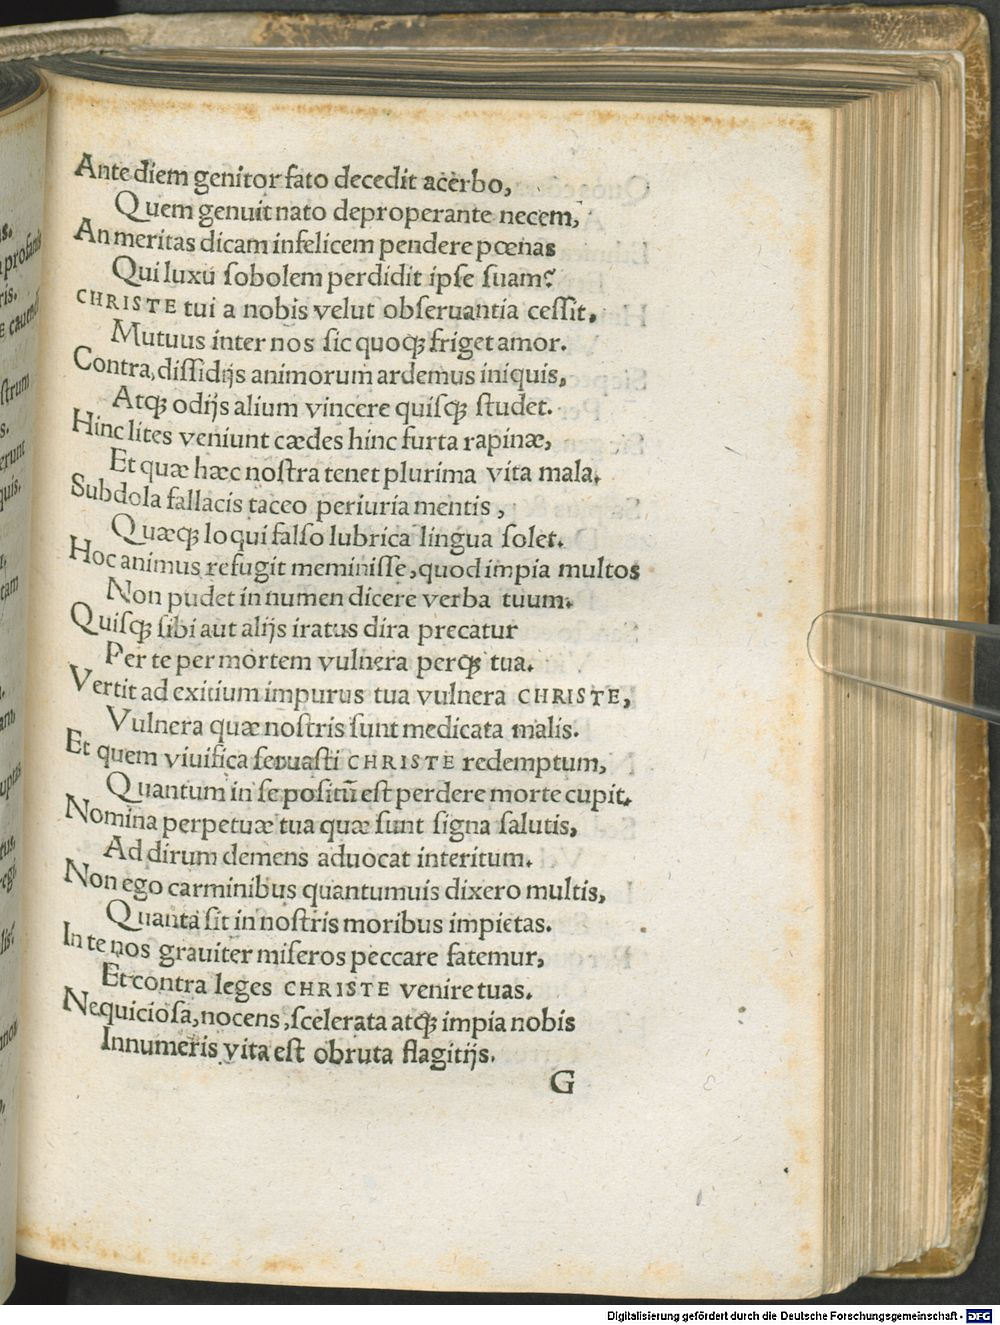 Ante diem genitor fato decedit acerbo,
Quem genuit nato deproperante necem,
An meritas dicam infelicem pendere pœnas
Qui luxu ſobolem perdidit ipſe ſuam?
CHRISTE tui a nobis velut obſeruantia ceſſit,
Mutuus inter nos ſic quoqꝫ friget amor.
Contra, diſſidijs animorum ardemus iniquis,
Atqꝫ odijs alium vincere quiſqꝫ ſtudet.
Hinc lites veniunt cædes hinc furta rapinæ,
Et quæ hæc noſtra tenet plurima vita mala.
Subdola fallacis taceo periuria mentis,
Quæqꝫ loqui falſo lubrica lingua ſolet.
Hoc animus refugit meminiſſe, quod impia multos
Non pudet in numen dicere verba tuum.
Quiſqꝫ ſibi aut alijs iratus dira precatur
Per te per mortem vulnera perqꝫ tua.
Vertit ad exitium impurus tua vulnera CHRISTE,
Vulnera quæ noſtris ſunt medicata malis.
Et quem viuifica ſeruaſti CHRISTE redemptum,
Quantum in ſe poſitū eſt perdere morte cupit.
Nomina perpetuæ tua quæ ſunt ſigna ſalutis,
Ad dirum demens aduocat interitum.
Non ego carminibus quantumuis dixero multis,
Quanta ſit in noſtris moribus impietas.
In te nos grauiter miſeros peccare fatemur,
Et contra leges CHRISTE venire tuas.
Nequicioſa, nocens, ſcelerata atqꝫ impia nobis
Innumeris vita eſt obruta flagitijs.
G
Digitalisierung gefördert durch die Deutsche Forschungsgemeinschaft - DFG